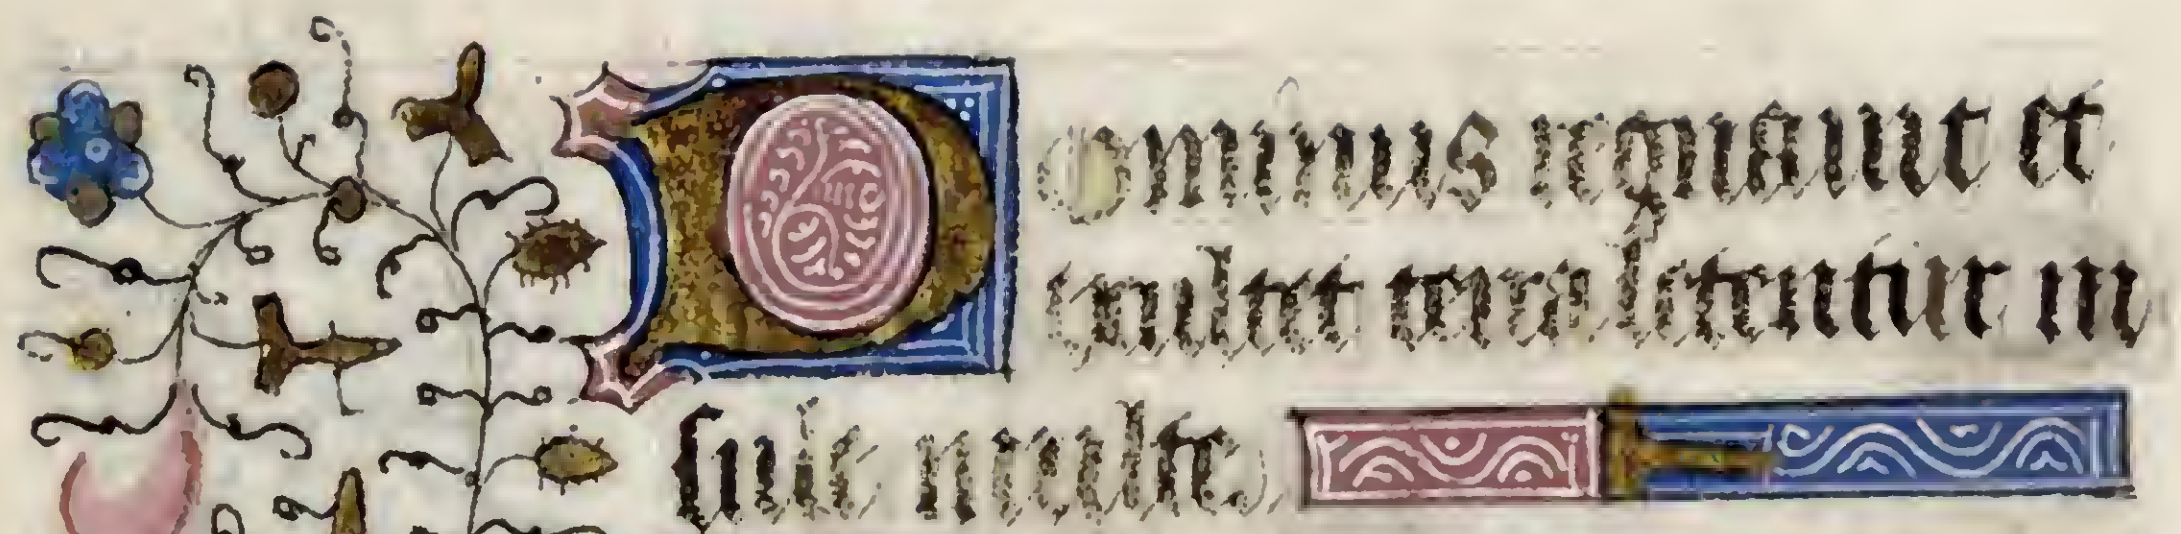 Dominus regnauit et
exultet terra letentur in
sule multe